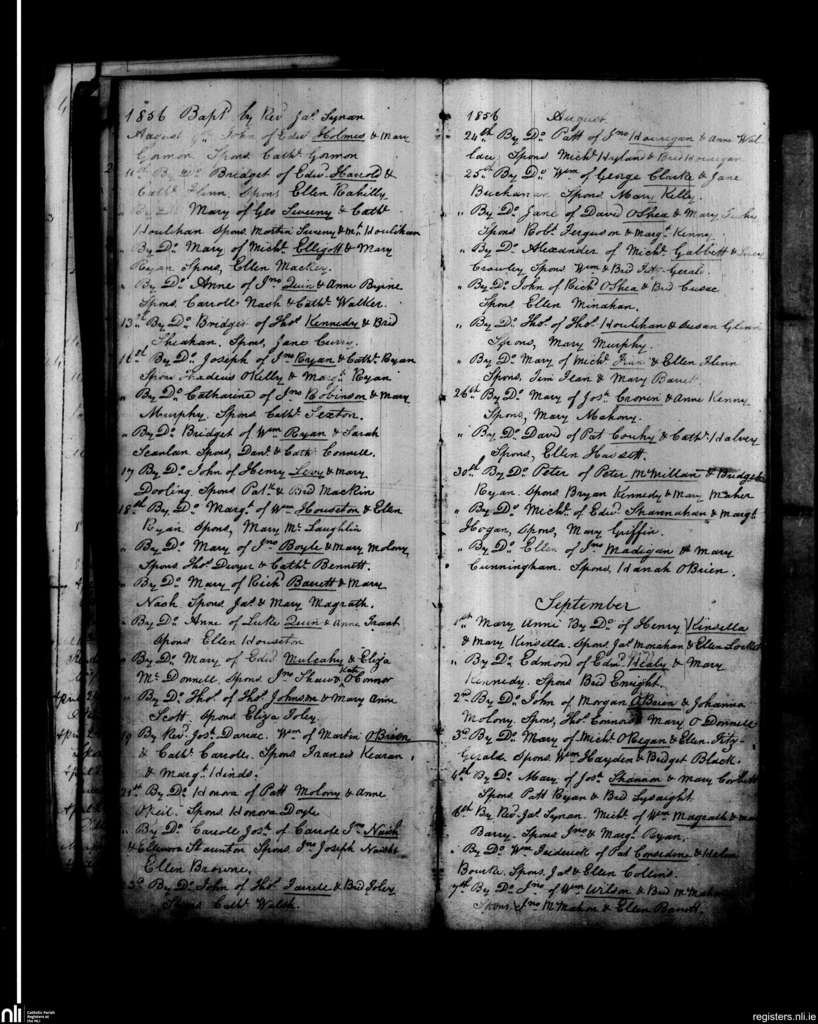 1856 Bapt by Rev Jas. Synan
August John of Edwd Holmes & Mary
Gormon Spons Cathe. Gormon
By Do. Bridget of Edwd. Harrold &
Cathe. Flinn. Spons Ellen Rahilly
Mary of Geo Sweeny & Cathe.
Houlihan Spons Martin Sweeny & Mt. Houlihan
" By Do. Mary of Michl. Elligott & Mary
Ryan Spons, Ellen Mackey.
" By Do. Anne of Jno Quin & Anne Byrine
Spons. Carroll Nash & Cathe. Walker.
13th By Do. Bridget of Thos. Kennedy & Brid
Sheahan. Spons, Jane Curry.
16th By Do. Joseph of Jno Ryan & Cathe. Ryan
Spons Thadeus OKelly & Margt. Ryan
" By Do. Catharine of Jno Robinson & Mary
Murphy. Spons Cathe. Sexton.
" By Do. Bridget of Wm Ryan & Sarah
Scanlan Spons, Danl. & Cath Connell.
17 By Do. John of Henry Levy & Mary
Dooling. Spons Patk. & Brid Mackin
18th By Do. Margt. of Wm Houseton & Ellen
Ryan Spons, Mary Mc Laughlin
" By Do. Mary of Jno Boyle & Mary Molony
Spons Thos. Dwyer & Cathe. Bennett.
" By Do. Mary of Richd Barrett & Mary
Nash Spons Jas. & Mary Magrath.
" By Do. Anne of Luke Quin & Anne
Spons Ellen Houseton
" By Do. Mary of Edwd Mulcahy & Eliza
Mc Donnell. Spons Jno Shaw & Kate O'Connor
" By Do. Thos. of Thos. Johnson & Mary Anne
Scott. Spons Eliza Foley.
19 By Revd. Jos. Wm of Martin OBrien
& Cathe. Carroll. Spons Francis Kearan
& Margt. Hinds.
By Do. Honora of Patt Molony & Anne
Neil. Spons Honora Doyle
" By Do. Carroll Jos. of Carroll Jno Nash
& Ellenora Staunton Spons. Jno Joseph Naish
Ellen Browne,
23d By Do. John of Thos. Farrell & Brid Foley
Spons Cathe. Walsh.
1856 August
24th By Do. Patt of Jno Hourigan & Anne Wal-
lace Spons Michl. Hayland & Brid Hourigan
25th By Do. Wm of George Clarke & Jane
Buchanan Spons Mary Kelly.
" By Do. Jane of David OShea & Mary
Spons Robt. Ferguson & Margt. Kenny
" By Do. Alexander of Michl. Gabbett &
Crowley Spons Wm & Brid Fitz-Gerald.
" By Do. John of Richd OShea & Brid Cusac
Spons Ellen Minahan.
" By Do. Thos. of Thos. Houlihan & Susan Glinn
Spons, Mary Murphy.
" By Do. Mary of Michl. & Ellen Flinn
Spons. Tim & Mary Barrett.
26th By Do. Mary of Jos. Cronin & Anne Kenny
Spons, Mary Mahony.
" By Do. David of Pat & Cathe. Halvey
Spons, Ellen
30th By Do. Peter of Peter McMillan & Bridget
Ryan Spons Bryan Kennedy & Mary Maher
" By Do. Michl. of Edwd Shannahan & Margt.
Hogan, Spons, Mary Griffin.
" By Do. Ellen of Jno Madigan & Mary
Cunningham. Spons, Hanah OBrien.
September
1st Mary Anne By Do. of Henry Kinsella
& Mary Kinsella. Spons Jas Monahan & Ellen
" By Do. Edmond of Edwd. Healy & Mary
Kennedy. Spons Brid Enright.
2nd By Do. John of Morgan OBrien & Johanna
Molony. Spons, Thos. Connors & Mary O Donnell
3d By Do. Mary of Michl. ORegan & Ellen Fitz-
Gerald. Spons Wm Hayden & Bridget Black.
4th By Do. Mary of Jos. Shannon & Mary Corbett
Spons Patt Ryan & Brid Lysaight.
6th By Rev. Jas. Synan. Michl. of Wm Magrath &
Barry. Spons Jno & Margt. Ryan.
" By Do. Wm Frederick of Pat Considine & Helen
Bourke. Spons. Jas & Ellen Collins.
7th By Do. Jno of Wm Wilson & Brid McMahon
Spons. Jno McMahon & Ellen Barrett.
nli Catholic Parish
Registers at
the NLI
registers.nli.ie